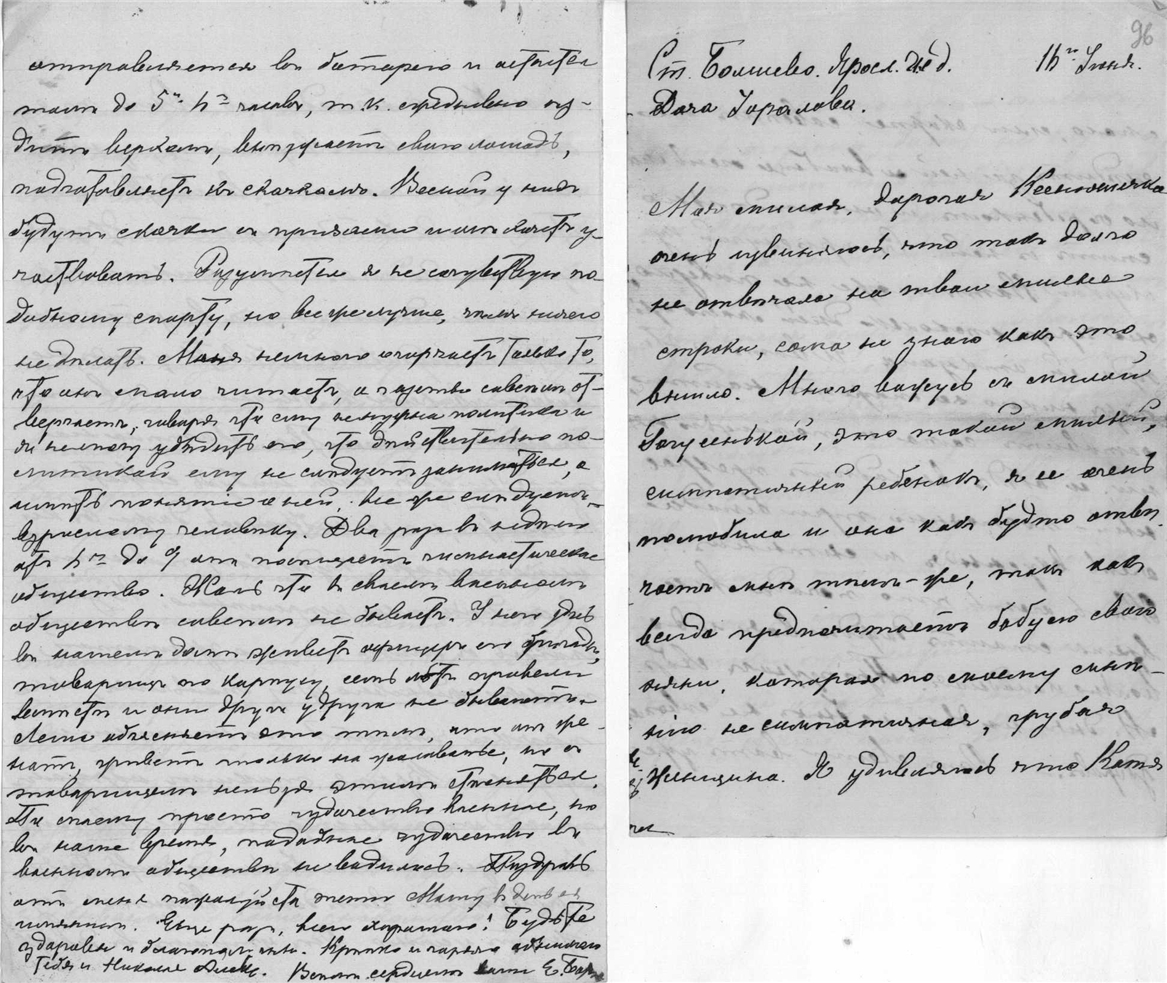 отправляется въ батарею и остается
тамъ до 5ти, 6ти часовъ, т. к. ежедневно ѣз-
дитъ верхомъ, выѣзжаетъ свою лошадь,
подготовляетъ къ скачкамъ. Весной у нихъ
будутъ скачки съ призами и онъ хочетъ у-
частвовать. Разумѣется я не сочувствую по-
добному спорту, но все же лучше, чѣмъ ничего
не дѣлать. Меня немного огорчаетъ только то,
что онъ мало читаетъ, а газеты совсѣмъ от-
вергаетъ, говоря что ему не нужна политика и
я не могу убѣдить его, что дѣйствительно по-
литикой ему не слѣдуетъ заниматься, а
имѣть понятіе о ней все же слѣдуетъ
взрослому человѣку. Два раза въ недѣлю
отъ 6ти до 9 онъ посѣщаетъ гимнастическое
общество. Жаль что въ своемъ военномъ
обществѣ совсѣмъ не бываетъ. У него здѣсь
въ нашемъ домѣ живетъ офицеръ его бригады,
товарищъ по корпусу, семь лѣтъ провели
вмѣстѣ и они другъ у друга не бываютъ.
объясняетъ это тѣмъ, что онъ же-
натъ, живетъ только на жалованье, но съ
товарищемъ нельзя этимъ стѣсняться.
По моему просто чудачество военное, но
въ наше время, подобныя чудачества въ
военномъ обществѣ не водились. Поздравь
отъ меня пожалуйста тетю Машу въ день ея
имянинъ. Еще разъ, всего хорошаго! Будьте
здоровы и благополучны. Крѣпко и горячо обнимаю
тебя и Николая. Всѣмъ сердцемъ Е. Бар
96
Ст. Болшево. Яросл. ж. д. 16го Іюня.
Дача
Моя милая, дорогая Ксеношечка
очень извиняюсь, что такъ долго
не отвѣчала на твои милыя
строки, сама не знаю какъ это
вышло. Много вожусь съ милой
Тусенькой, это такой милый,
симпатичный ребенокъ, я ее очень
полюбила и она какъ будто отвѣ-
чаетъ мнѣ тѣмъ-же, такъ какъ
всегда предпочитаетъ бабусю своей
няни, которая по моему мнѣ-
нію не симпатичная, грубая
женщина. Я удивляюсь что Катя